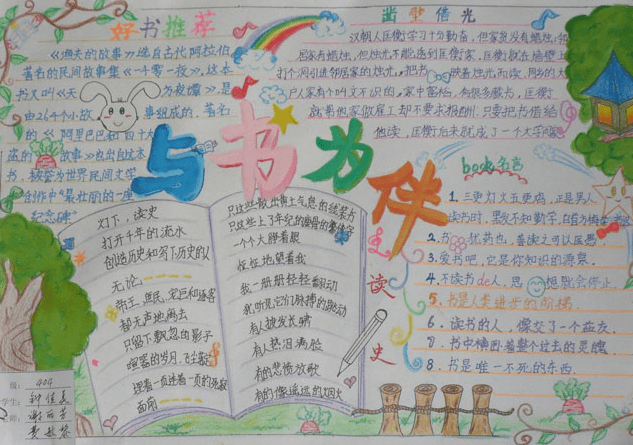 好书推荐
《渔夫的故事》选自古代阿拉伯
著名的民间故事集《一千零一夜》,这本
书又叫《天方夜谭》,是
由264个小故事组成的,著名
的《阿里巴巴和四十大
盗的故事》也出自这本
书,被誉为世界民间文学
创作中“最壮丽的一座
纪念碑”
凿壁借光
汉朝人匡衡学习十分勤奋,但家贫没有蜡烛,邻
居家有蜡烛,但烛光不能透到匡衡家,匡衡就在墙壁上
打个洞引进邻居家的烛光,把书映着烛光而读,同乡的大
户人家有个叫文不识的,家中富裕,有很多藏书,匡衡
就帮他家做雇工却不要求报酬,只要把书借给
他读,匡衡后来就成了一个大学
与书为伴
灯下,读史
打开千年的流水
创造历史和写下历史的人
无论:
帝王,庶民,宠臣和逐客
都无声地离去
只留下飘忽的影子
喧嚣的岁月,飞尘般
埋着一页连着一页的
面前
一个大睁着眼
怔怔地望着我
我一册册轻轻翻动
我听见它们脉搏的跳动
有人披发长啸
有人热泪满脸
有的悲愤放歌
有的像遥远的烟火
读
史
book名言
1.三更灯火五更鸡,正是男人
读书时,黑发不知勤学早,白首方悔读书迟
2.书犹药也,善读之可以医愚
3.爱书吧,它是你知识的源泉.
4.不读书de人,思想就会停止.
5.书是人类进步的阶梯.
6.读书的人,像交了一个益友.
7.书中横卧着整个过去的灵魂.
8.书是唯一不死的东西.
级:404
学生:钟佳